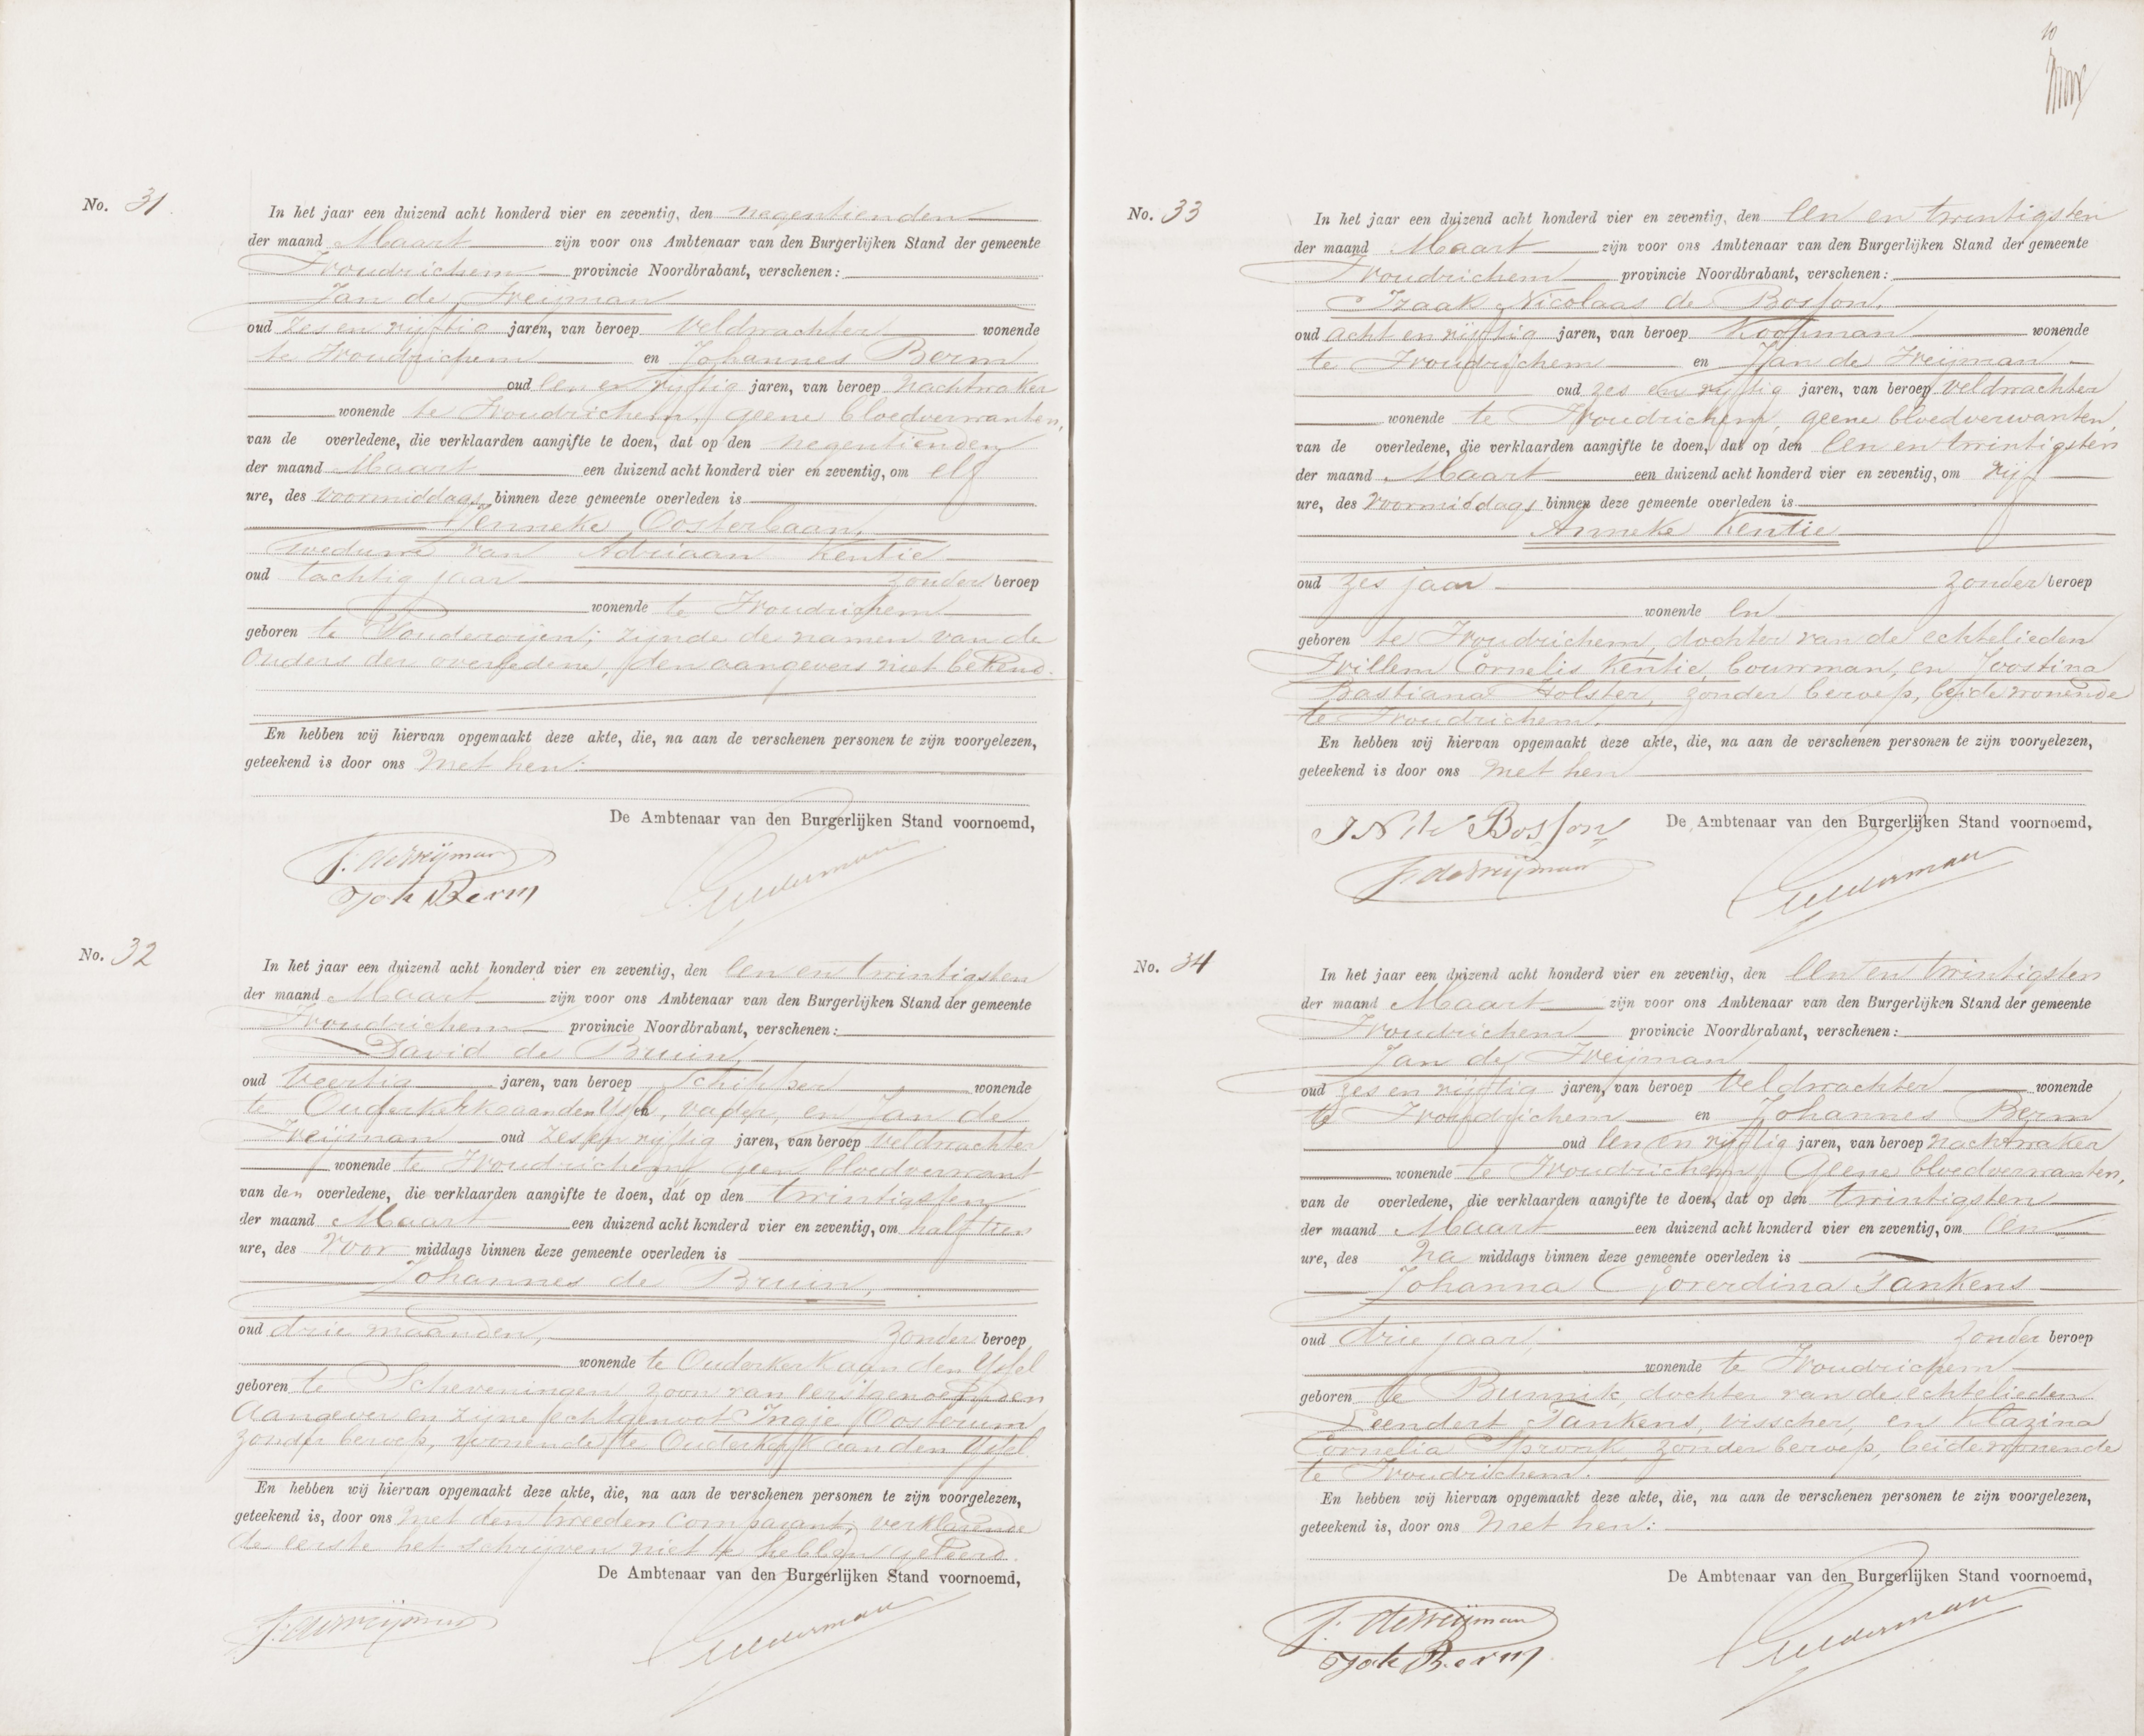 No. 31
In het jaar een duizend acht honderd vier en zeventig, den negentienden
der maand Maart zijn voor ons Ambtenaar van den Burgerlijken Stand der gemeente
Woudrichem provincie Noordbrabant, verschenen:
Jan de Weijman
oud zes en vijftig jaren, van beroep veldwachter wonende
te Woudrichem en Johannes Berm
oud een en vijftig jaren, van beroep nachtwaker
wonende te Woudrichem, geene bloedverwanten,
van de overledene, die verklaarden aangifte te doen, dat op den negentienden
der maand Maart een duizend acht honderd vier en zeventig, om elf
ure, des voormiddags binnen deze gemeente overleden is
Jenneke Oosterbaan,
weduwe van Adriaan Kentie
oud tachtig jaar zonder beroep
wonende te Woudrichem
geboren te ; zijnde de namen van de
Ouders der overledene, den aangevers niet bekend.
En hebben wij hiervan opgemaakt deze akte, die, na aan de verschenen personen te zijn voorgelezen,
geteekend is door ons met hen:
De Ambtenaar van den Burgerlijken Stand voornoemd,
J. de Weijman
Joh Berm
No. 32
In het jaar een duizend acht honderd vier en zeventig, den een en twintigsten
der maand Maart zijn voor ons Ambtenaar van den Burgerlijken Stand der gemeente
Woudrichem provincie Noordbrabant, verschenen:
David de Bruin,
oud veertig jaren, van beroep Schipper wonende
te Ouderkerk aan den Yssel, vader, en Jan de
Weijman oud zes en vijftig jaren, van beroep veldwachter
wonende te Woudrichem geen bloedverwant
van den overledene, die verklaarden aangifte te doen, dat op den twintigsten
der maand Maart een duizend acht honderd vier en zeventig, om half tien
ure, des voor middags binnen deze gemeente overleden is
Johannes de Bruin,
oud drie maanden, zonder beroep
wonende te Ouderkerk aan den Yssel
geboren te Scheveningen zoon van eerstgenoemden
Aangever en zijne echtgenoot Ingje Oosterum,
zonder beroep, wonende te Ouderkerk aan den Yssel
En hebben wij hiervan opgemaakt deze akte, die, na aan de verschenen personen te zijn voorgelezen,
geteekend is, door ons met den tweeden comparant, verklarende
de eerste het schrijven niet te hebben geleerd.
De Ambtenaar van den Burgerlijken Stand voornoemd,
J. de Weijman
10
No. 33
In het jaar een duizend acht honderd vier en zeventig, den een en twintigsten
der maand Maart zijn voor ons Ambtenaar van den Burgerlijken Stand der gemeente
Woudrichem provincie Noordbrabant, verschenen:
Izaak Nicolaas de Bosson,
oud acht en vijftig jaren, van beroep Koopman wonende
te Woudrichem en Jan de Weijman
oud zes en vijftig jaren, van beroep veldwachter
wonende te Woudrichem, geene bloedverwanten,
van de overledene, die verklaarden aangifte te doen, dat op den een en twintigsten
der maand Maart een duizend acht honderd vier en zeventig, om vijf
ure, des voormiddags binnen deze gemeente overleden is
Anneke Kentie
oud zes jaar zonder beroep
wonende en
geboren te Woudrichem, dochter van de echtelieden
Willem Cornelis Kentie, bouwman, en Joostina
Bastiana Holster, zonder beroep, beide wonende
te Woudrichem.
En hebben wij hiervan opgemaakt deze akte, die, na aan de verschenen personen te zijn voorgelezen,
geteekend is door ons met hen
De Ambtenaar van den Burgerlijken Stand voornoemd,
I N de Bosson
J. de Weijman
No. 34
In het jaar een duizend acht honderd vier en zeventig, den een en twintigsten
der maand Maart zijn voor ons Ambtenaar van den Burgerlijken Stand der gemeente
Woudrichem provincie Noordbrabant, verschenen:
Jan de Weijman
oud zes en vijftig jaren, van beroep veldwachter wonende
te Woudrichem en Johannes Berm
oud een en vijftig jaren, van beroep nachtwaker
wonende te Woudrichem, Geene bloedverwanten,
van de overledene, die verklaarden aangifte te doen, dat op den twintigsten
der maand Maart een duizend acht honderd vier en zeventig, om één
ure, des na middags binnen deze gemeente overleden is
Johanna Goverdina Tankens
oud drie jaar, zonder beroep
wonende te Woudrichem
geboren te Bunnik, dochter van de echtelieden
Leendert Tankens, visscher, en Klazina
Cornelia Spronk, zonder beroep, beide wonende
te Woudrichem.
En hebben wij hiervan opgemaakt deze akte, die, na aan de verschenen personen te zijn voorgelezen,
geteekend is, door ons met hen:
De Ambtenaar van den Burgerlijken Stand voornoemd,
J. de Weijman
Joh Berm